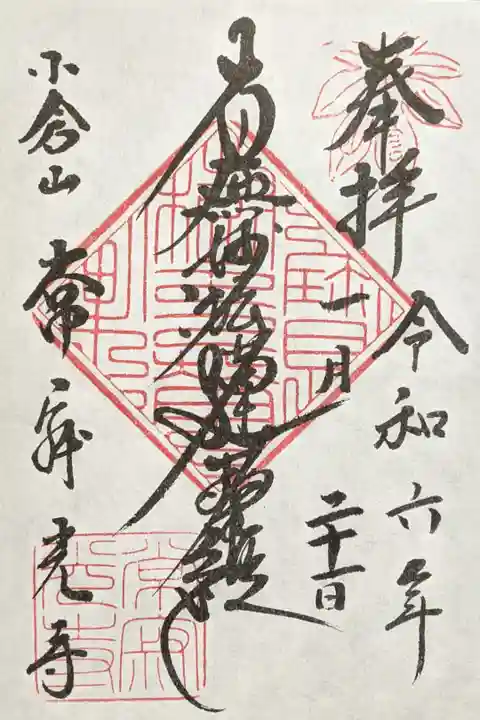 奉拝
令和六年
一月
二十一日
南無妙法蓮華経
小倉山
常寂光寺
常寂光寺